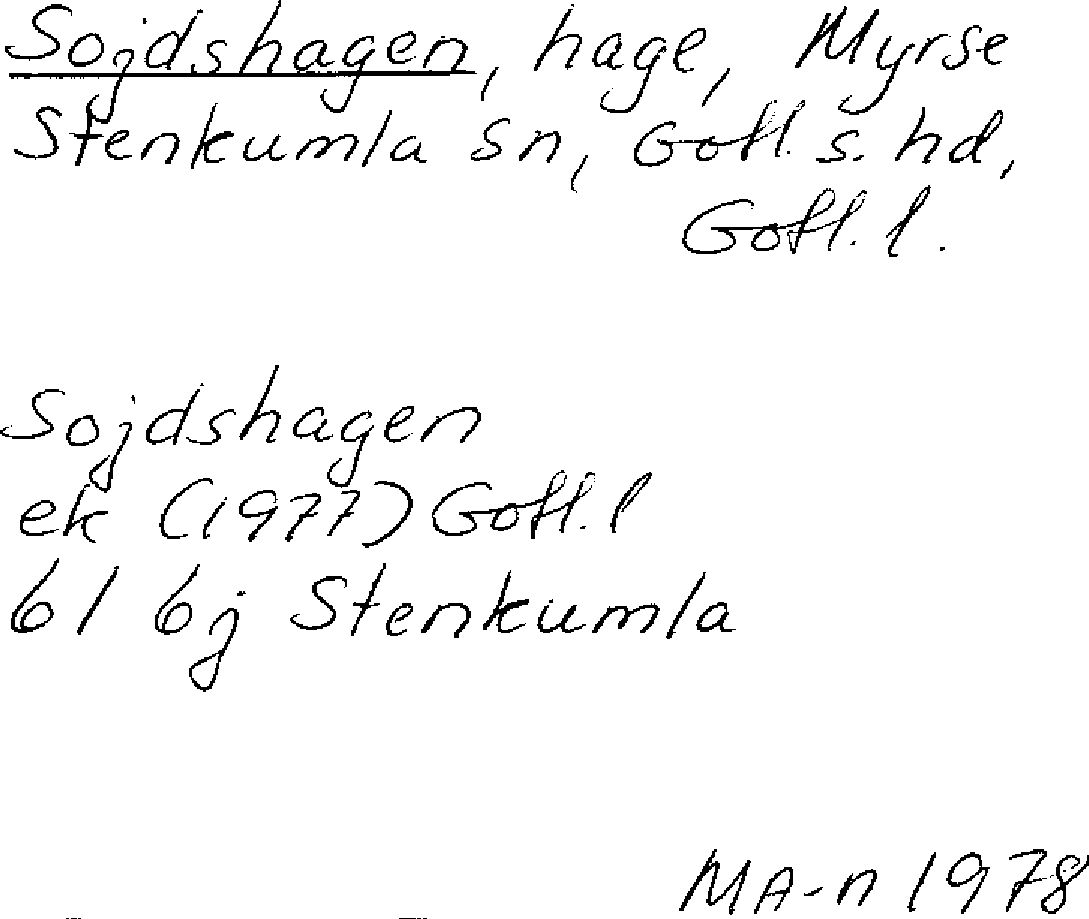 Sojdshagen, hage, Myrse
Stenkumla sn, Gotl. s. hd,
Gotl. l.
Sojdshagen
ek (1977) Gotl. l
6I 6j Stenkumla
MA-n 1978